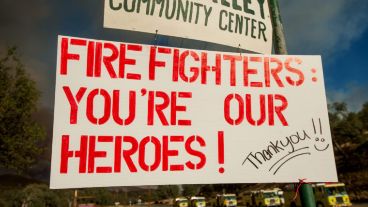 COMMUNITY CENTER
FIRE FIGHTERS:
YOU'RE OUR
HEROES!
Thankyou!!